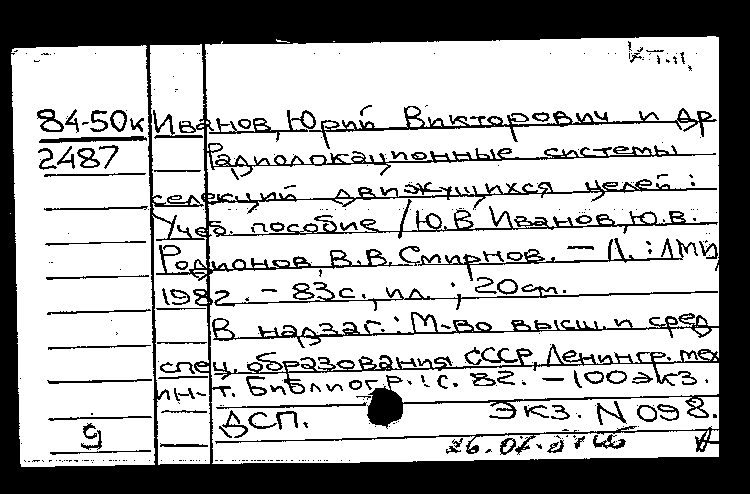 84-50к Иванов, Юрий Викторович и др
2487 Радиолокационные системы
селекций движущихся целей:
Учеб. пособие / Ю.В Иванов, Ю.В.
Родионов, В.В. Смирнов. — Л.: ЛМИ,
1982. - 83с., ил.; 20см.
В надзаг.: М-во высш. и сред
спец. образования СССР, Ленингр. мех
ин-т. Библиогр.: с. 82. — 100экз.
ДСП. Экз. N 098.
9